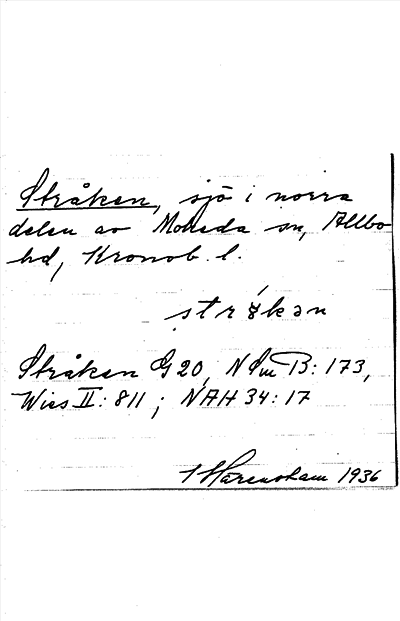 Stråken, sjö i norra
delen av Moheda sn, Allbo
hd, Kronob. l.
strǿkən
Stråken G 20, NSmB: 173,
Wies II: 811; NAH 34: 17
1936